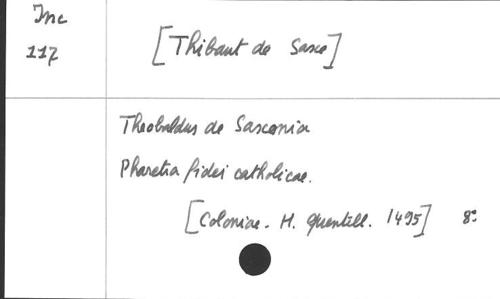 Inc
117
[Thibaut de Saxe]
Theobaldus de Saxconia
Pharetra fidei catholicae.
[Coloniae. H. Quentell. 1495] 8°